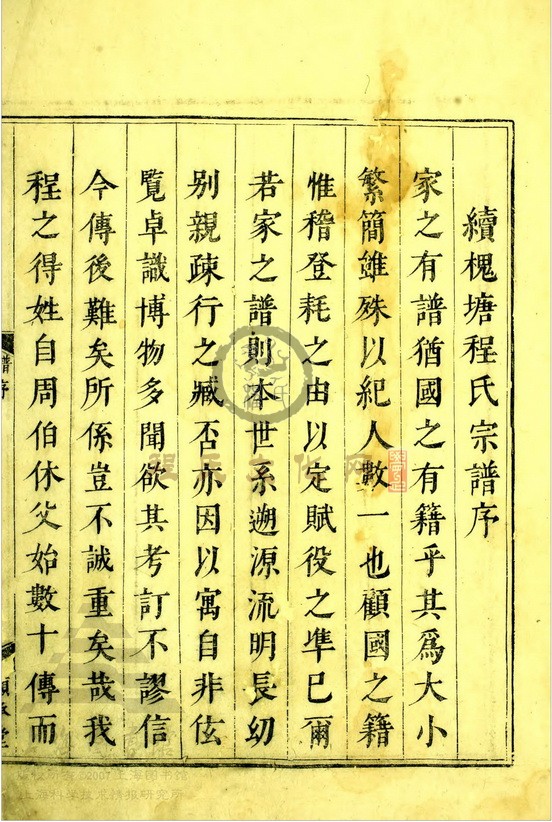 續槐塘程氏宗譜序
家之有譜猶國之有籍乎其為大小
繁簡雖殊以紀人數一也顧國之籍
惟稽登耗之由以定賦役之準已爾
若家之譜則本世系遡源流明長幼
别親疎行之臧否亦因以寓自非伭
覧卓識博物多聞欲其考訂不謬信
今傳後難矣所係豈不誠重矣哉我
程之得姓自周伯休父始數十傳而
譜序
程氏文化网
©2007上海图书馆
上海科学技术情报研究所